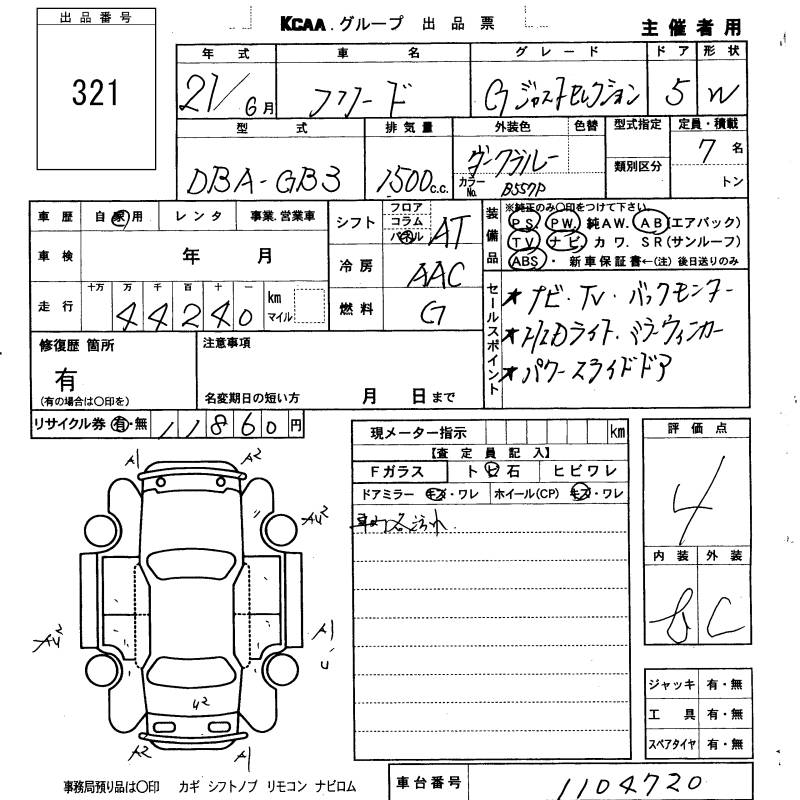 出品番号
321
KCAA.グループ 出品票
主催者用
年式 車名 グレード ドア 形状
21/6月 フリード Gジャストセレクション 5 W
型式 排気量 外装色 色替 型式指定 定員・積載
DBA-GB3 1500c.c. ダークブルー 7名
カラーNo. B557P 類別区分 トン
車歴 自家用 レンタ 事業.営業車
シフト フロア コラム パネル AT
車検 年 月
冷房 AAC
走行 十万 万 千 百 十 一 km マイル
44240
燃料 G
装備品 ※純正のみ○印をつけて下さい。
PS. PW. 純AW. AB(エアバック)
TV ナビ カワ. SR(サンルーフ)
ABS・ 新車保証書←(注)後日送りのみ
セールスポイント
★ナビ・TV・バックモニター
★HIDライト・ミラーウィンカー
★パワースライドドア
修復歴 箇所
有
(有の場合は○印を)
注意事項
名変期日の短い方 月 日まで
リサイクル券 有・無 11860円
現メーター指示 km
【査定員記入】
Fガラス トビ石 ヒビワレ
ドアミラー キズ・ワレ ホイール(CP) キズ・ワレ
車内各汚れ.
評価点
4
内装 外装
B C
ジャッキ 有・無
工具 有・無
スペアタイヤ 有・無
A1 A2
AU2
AU2
A1
U
U2
A2 A1
事務局預り品は○印 カギ シフトノブ リモコン ナビロム
車台番号 1104720